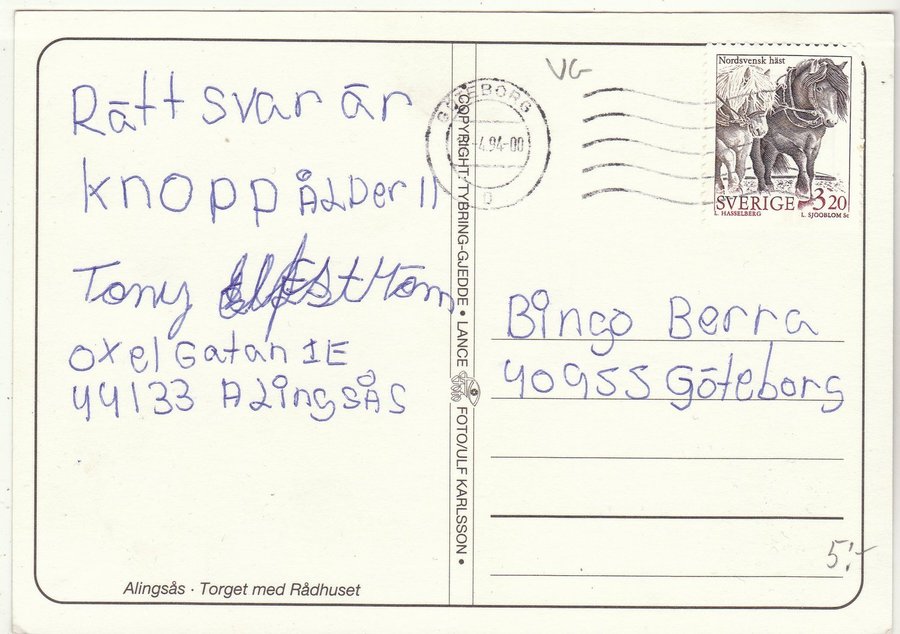 Rätt svar är
knopp ÅLDer 11
Tony
oxel Gatan 1E
44133 ALingsÅs
Alingsås · Torget med Rådhuset
COPYRIGHT: TYBRING-GJEDDE • LANCE
FOTO/ULF KARLSSON •
VG
GÖTEBORG
4.94-00
Nordsvensk häst
SVERIGE 320
L. HASSELBERG L. SJÖÖBLOM Sc
Bingo Berra
40955 Göteborg
5:-